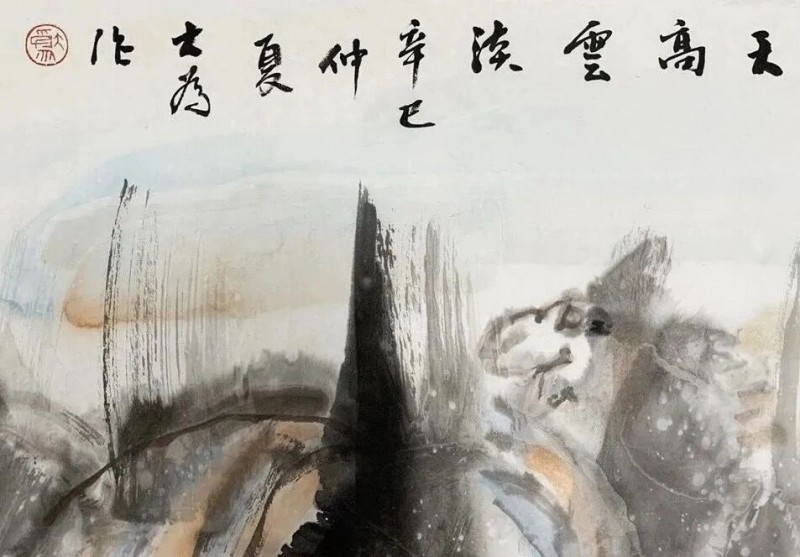 天高雲淡 辛巳仲夏 大為作